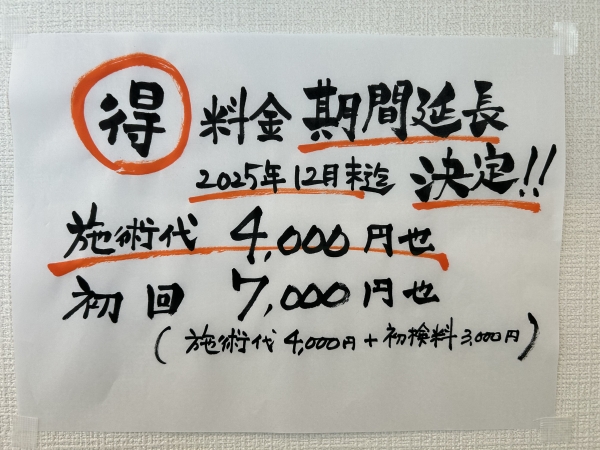 得 料金 期間延長
2025年12月末迄 決定!!
施術代 4,000円也
初回 7,000円也
(施術代4,000円+初検料3,000円)